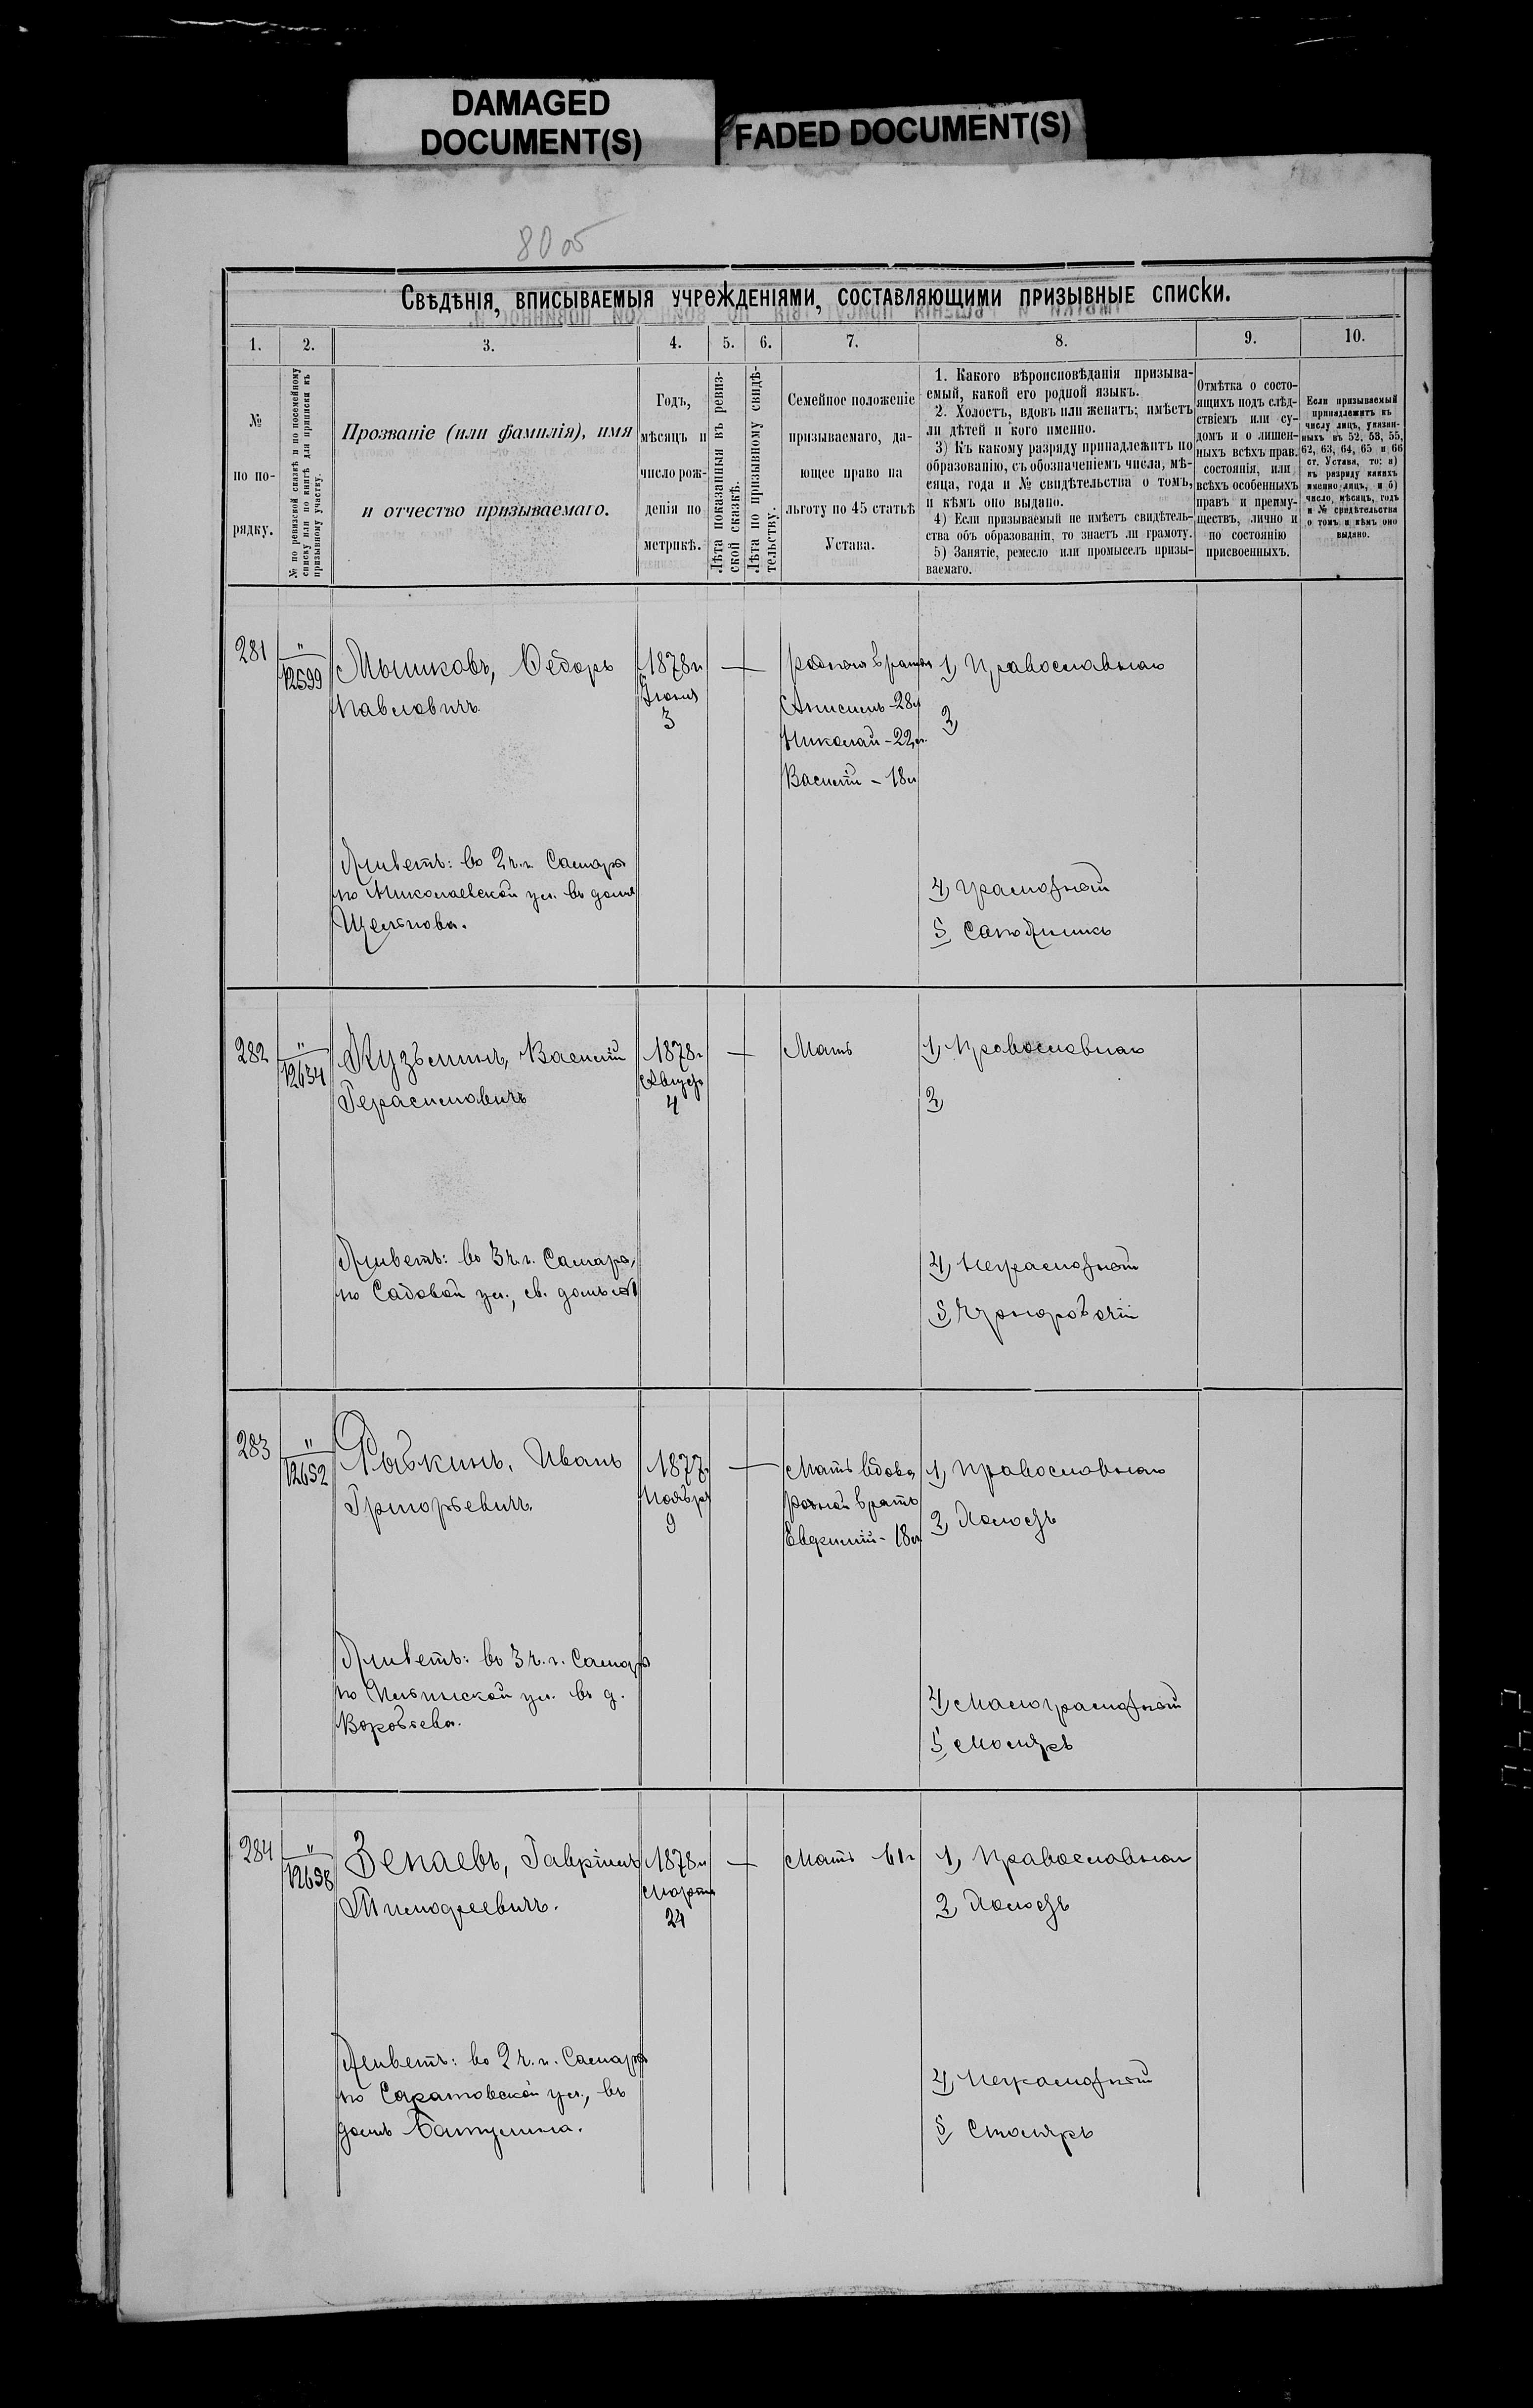 DAMAGED
DOCUMENT(S)
FADED DOCUMENT(S)
80 об
Свѣдѣнія, вписываемыя учрежденіями, составляющими призывные списки.
1. 2. 3. 4. 5. 6. 7. 8. 9. 10.
№
по по-
рядку.
№ по ревизской сказкѣ и по посемейному
списку или по книгѣ для приписки къ
призывному участку.
Прозваніе (или фамилія), имя
и отчество призываемаго.
Годъ,
мѣсяцъ и
число рож-
денія по
метрикѣ.
Лѣта показанныя въ ревиз-
ской сказкѣ.
Лѣта по призывному свидѣ-
тельству.
Семейное положеніе
призываемаго, да-
ющее право на
льготу по 45 статьѣ
Устава.
1. Какого вѣроисповѣданія призыва-
емый, какой его родной языкъ.
2. Холостъ, вдовъ или женатъ; имѣетъ
ли дѣтей и кого именно.
3) Къ какому разряду принадлежитъ по
образованію, съ обозначеніемъ числа, мѣ-
сяца, года и № свидѣтельства о томъ,
и кѣмъ оно выдано.
4) Если призываемый не имѣетъ свидѣтель-
ства объ образованіи, то знаетъ ли грамоту.
5) Занятіе, ремесло или промыселъ призы-
ваемаго.
Отмѣтка о состо-
ящихъ подъ слѣд-
ствіемъ или су-
домъ и о лишен-
ныхъ всѣхъ прав.
состоянія, или
всѣхъ особенныхъ
правъ и преиму-
ществъ, лично и
по состоянію
присвоенныхъ.
Если призываемый
принадлежитъ къ
числу лицъ, указан-
ныхъ въ 52, 53, 55,
62, 63, 64, 65 и 66
ст. Устава, то: а)
къ разряду какихъ
именно лицъ, и б)
число, мѣсяцъ, годъ
и № свидѣтельства
о томъ и кѣмъ оно
выдано.
281
"
12599
Мышковъ, Ѳедоръ
Павловичъ.
1878 г
Іюня
3
—
родныя братья
Анисимъ - 28 л
Николай - 22 л.
Василій - 18 л
1, Православнаго
2,
Живетъ: во 2 ч. г. Самары
по Николаевской ул. въ домѣ
4, Грамотный
5, Сапожникъ
282
"
12634
Кузьминъ, Василій
Герасимовичъ
1878 г
Августа
4
—
Мать
1, Православнаго
2,
Живетъ: въ 3 ч. г. Самары,
по Садовой ул., св. домъ
4, Неграмотный
5, Чернорабочій
283
"
12652
Рыбкинъ, Иванъ
Григорьевичъ.
1877 г
Ноября
9
—
Мать вдова
родной братъ
Евфимій - 18 л
1, Православнаго
2, Холостъ
Живетъ: въ 3 ч. г. Самары
по Ильинской ул. въ д.
Воробьева.
4, Малограмотный
5, Маляръ
284
"
12698
Зенаевъ, Гавріилъ
Тимофеевичъ.
1878 г
Марта
24
—
Мать 61 г
1, Православнаго
2, Холостъ
Живетъ: во 2 ч. г. Самары
по Саратовской ул., въ
домѣ Батулина.
4, Неграмотный
5, Столяръ